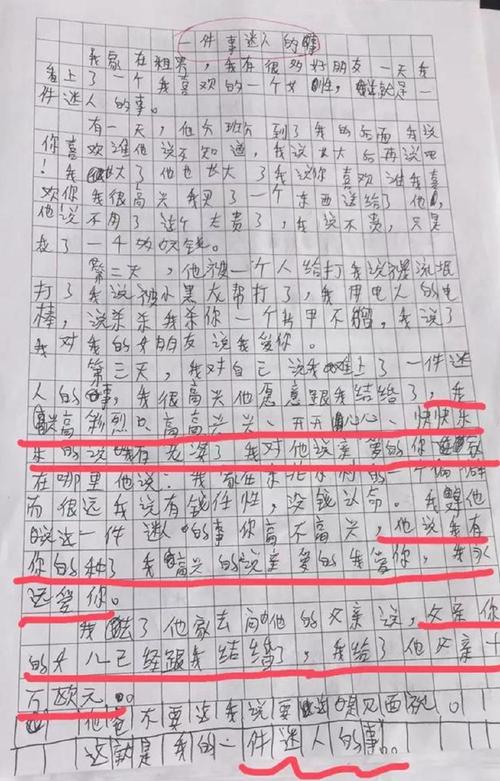 一件事迷人的事
我家在祖界，我有很多好朋友一天我
看上了一个我喜欢的一个女性，就是一
件迷人的事。
有一天，他分班到了我的后面我说
你喜欢谁他说不知道，我说长大后再说吧
！我长大了他也长大了我说你喜欢谁我喜
欢你我很高兴我买了一个东西送给了他，
他说不用了这个太贵了，我说不贵，只是
花了一千多欧钱。
第二天，他被一个人给打我说是流氓
打了我说被小黑友帮打了，我用电人的电
棒，说杀杀我杀你一个片甲不留，我说了
我对我的女朋友说我爱你。
第三天，我对自己说我难上了一件迷
人的事，我很高兴他愿意跟我结给了，我
高彩烈口高高兴兴、开开心心、快快乐
乐的没有我对他说亲爱的你家
在哪里他说：我家在东北的一个
而很远我说有钱任性，没钱认命。我
说这一件迷人的事你高不高兴，他说我有
你的种了我高兴的说亲爱的我爱你，我永
远爱你。
我去了他家去问他的父亲说，父亲你
的女儿已经跟我结给了，我给了他父亲十
万欧元。
他爸不要这我说要这是见面礼。
这就是我的一件迷人的事。